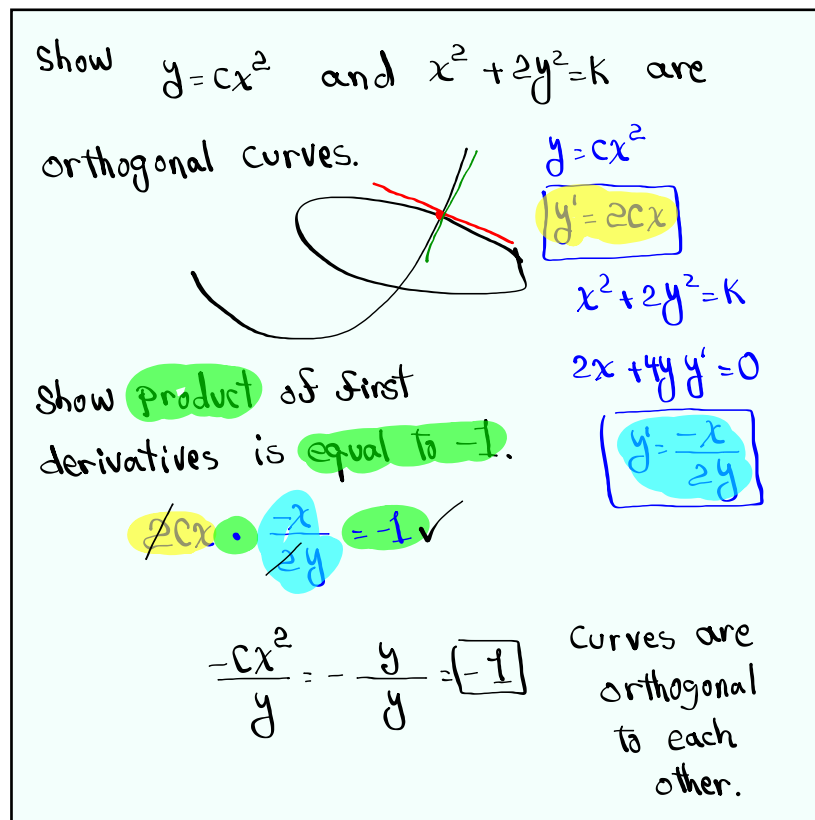 Show y = cx² and x² + 2y² = K are
orthogonal curves.
y = cx²
y' = 2cx
x² + 2y² = K
2x + 4y y' = 0
y' = -x / 2y
Show product of first
derivatives is equal to -1.
2cx • -x / 2y = -1 ✓
-cx² / y = - y / y = -1
Curves are
orthogonal
to each
other.